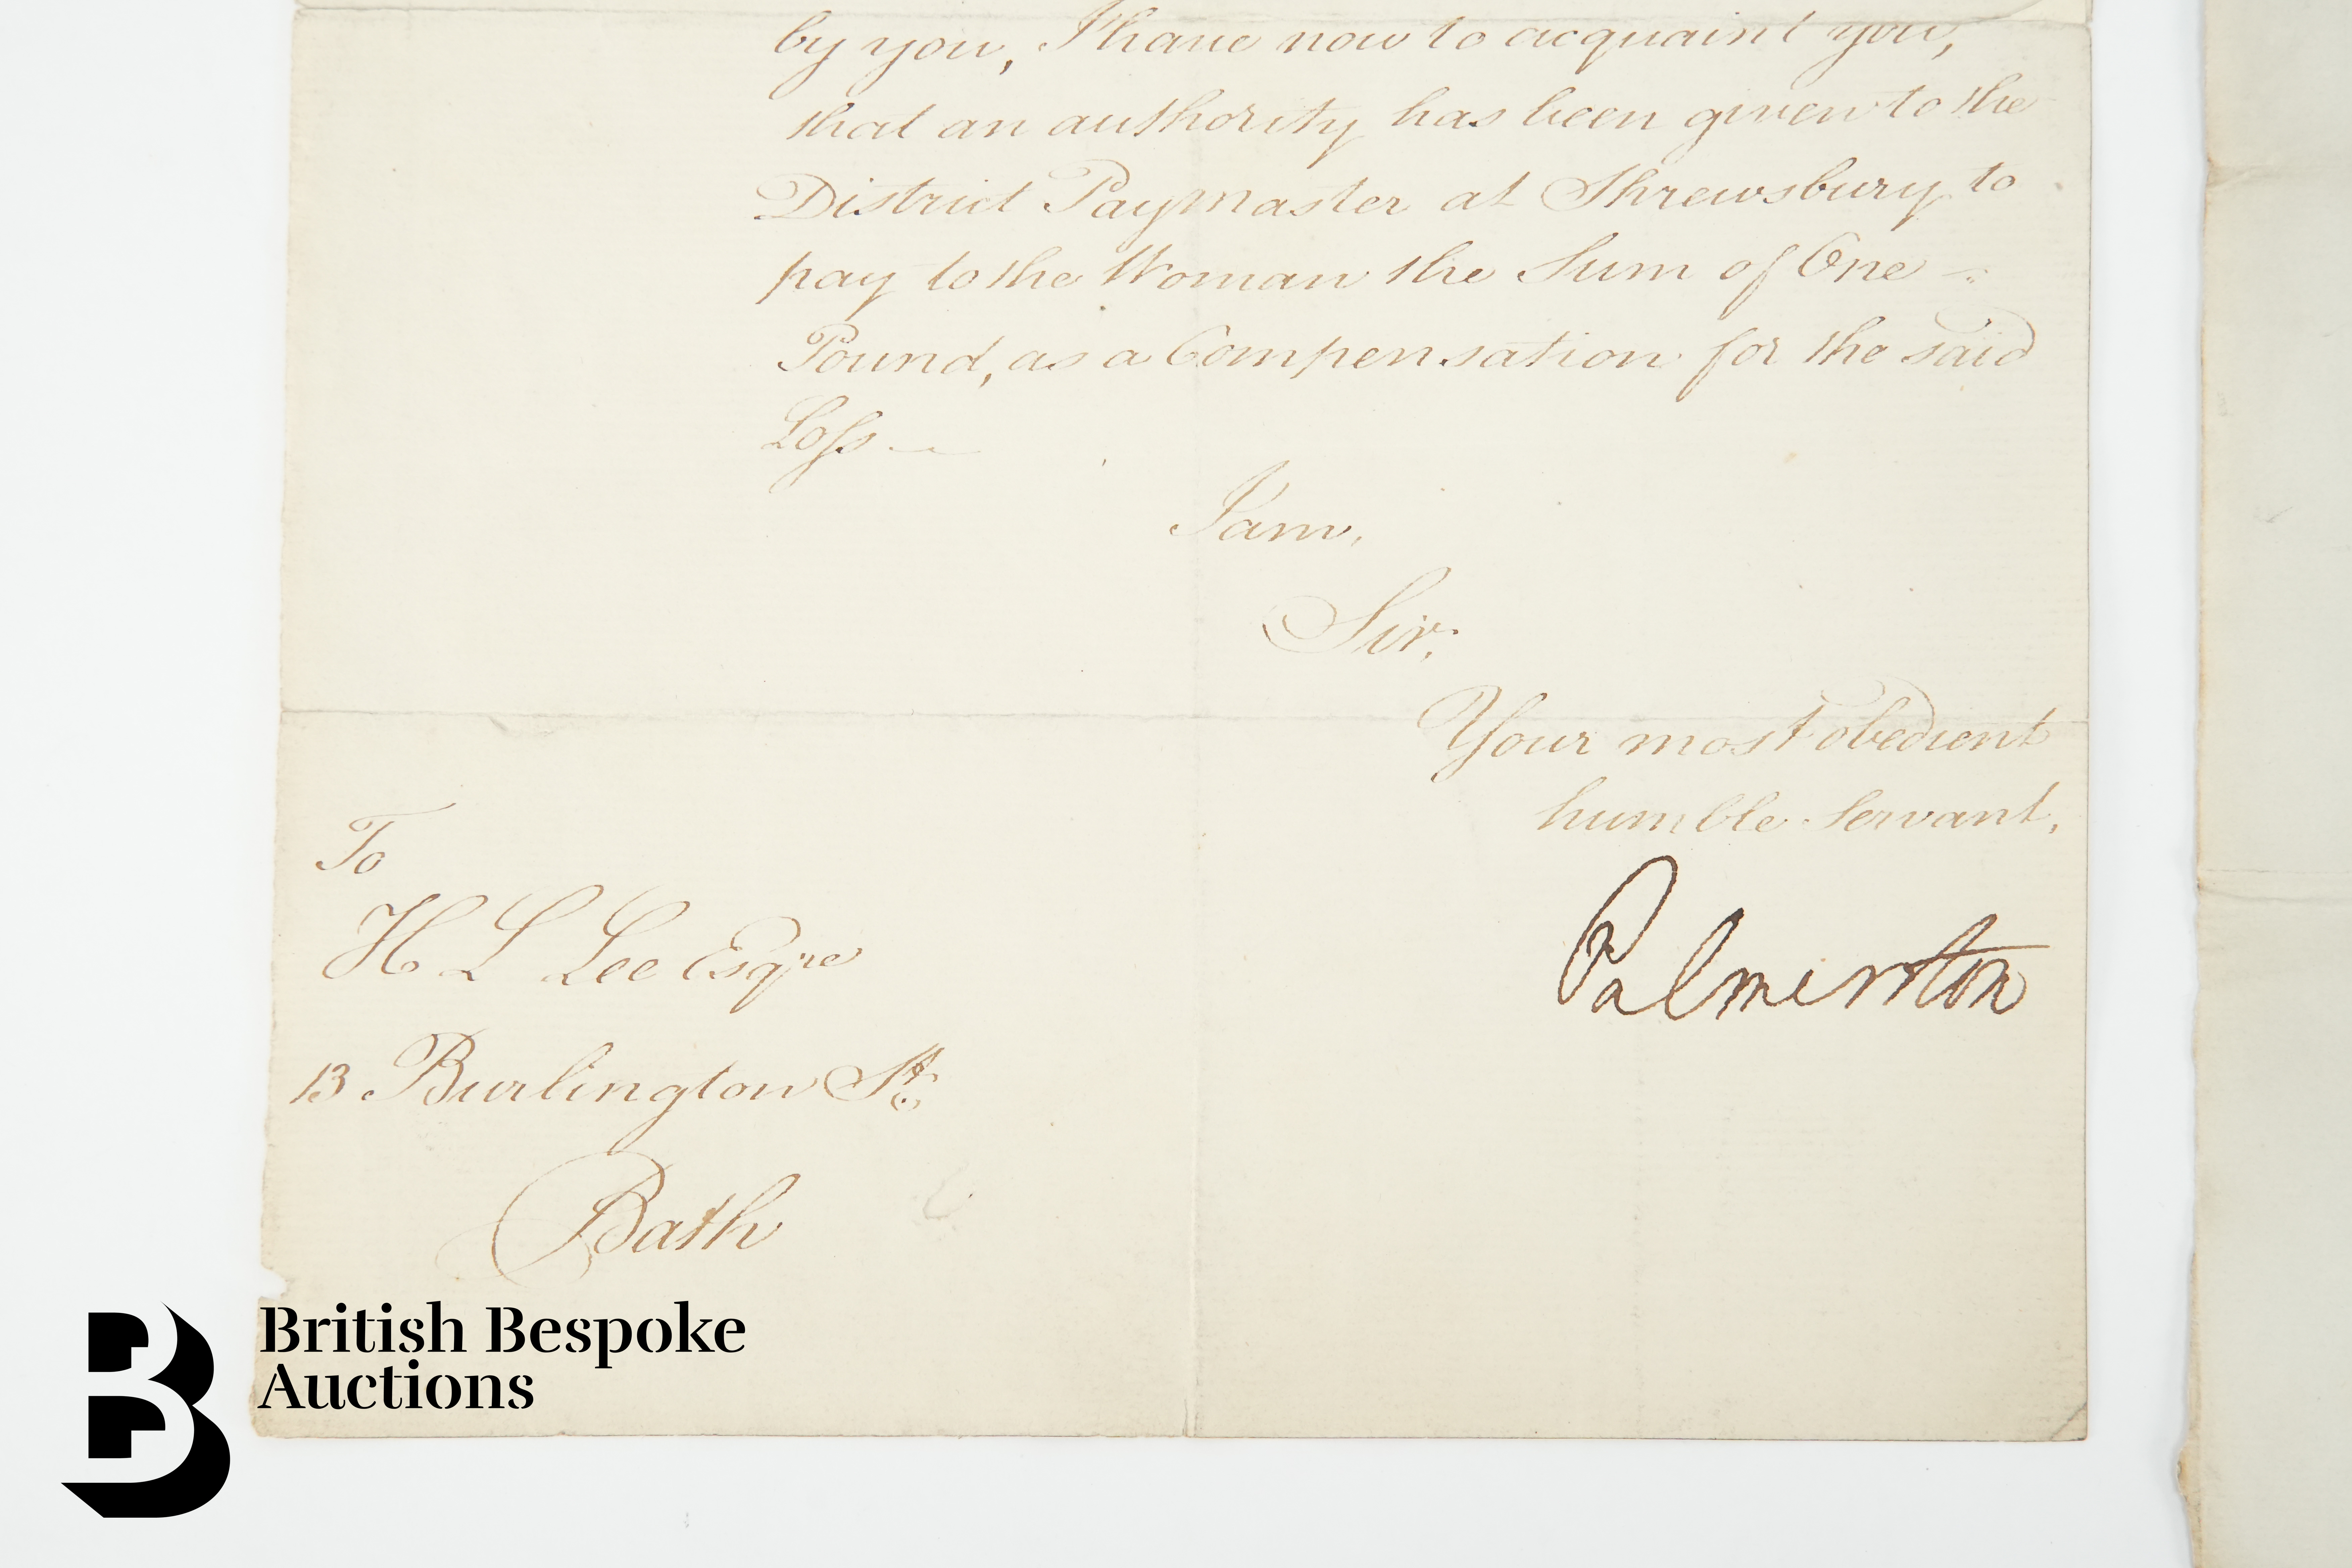 by you, I have now to acquaint you,
that an authority has been given to the
District Paymaster at Shrewsbury to
pay to the Woman the Sum of One -
Pound, as a Compensation for the said
Loſs —
I am,
Sir,
Your most obedient
humble Servant,
Palmerston
To
H L Lee Esqre
13 Burlington St.
Bath
British Bespoke
Auctions